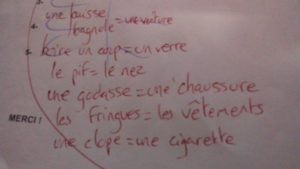 une caisse
bagnole = une voiture
boire un coup = un verre
le pif = le nez
une godasse = une chaussure
MERCI ! les fringues = les vêtements
une clope = une cigarette